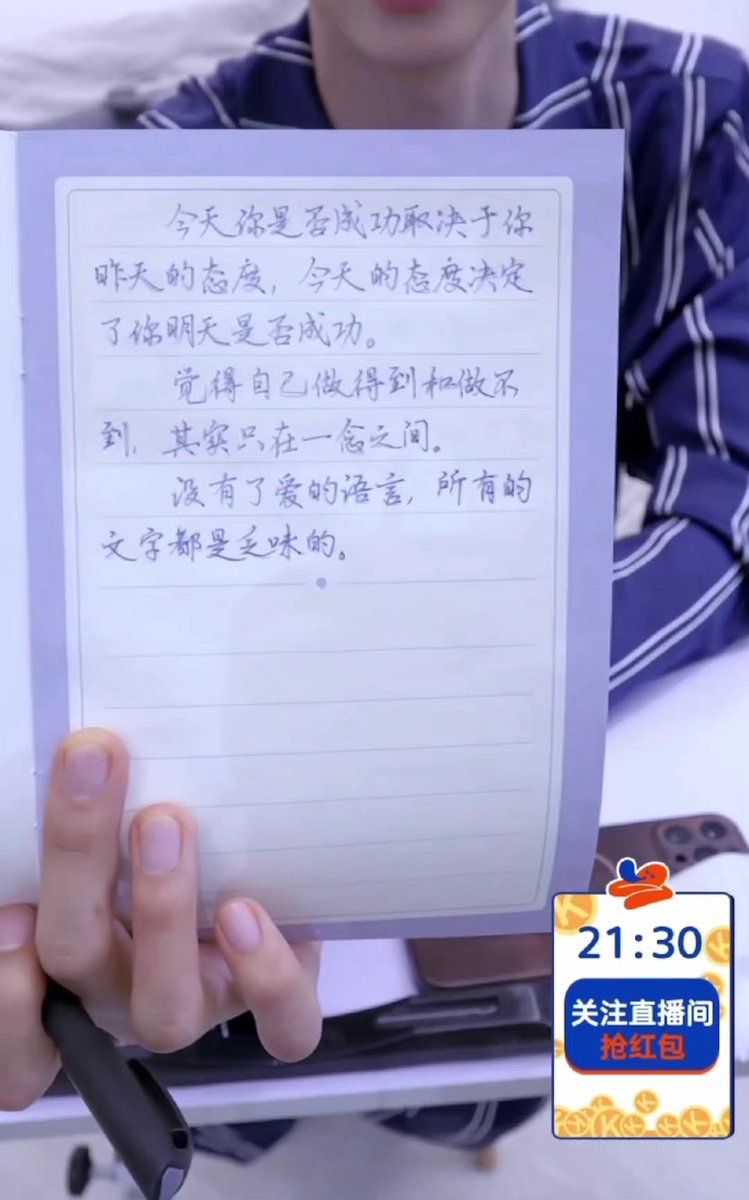 今天你是否成功取决于你
昨天的态度，今天的态度决定
了你明天是否成功。
觉得自己做得到和做不
到，其实只在一念之间。
没有了爱的语言，所有的
文字都是乏味的。
21:30
关注直播间
抢红包